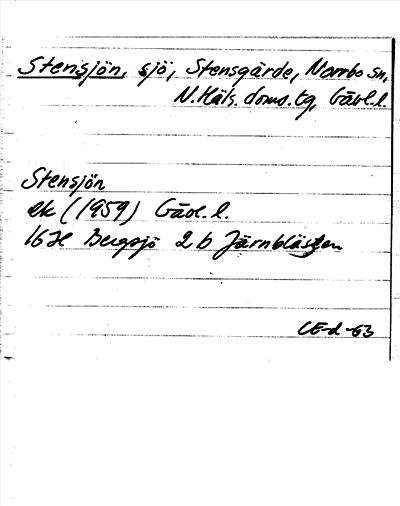 Stensjön, sjö, Stensgärde, Norrbo sn,
N. Häls. doms. tg, Gävl. l.
Stensjön
ek (1959) Gävl. l.
16H Bergsjö 2 b Järnblästen
CE-d-63